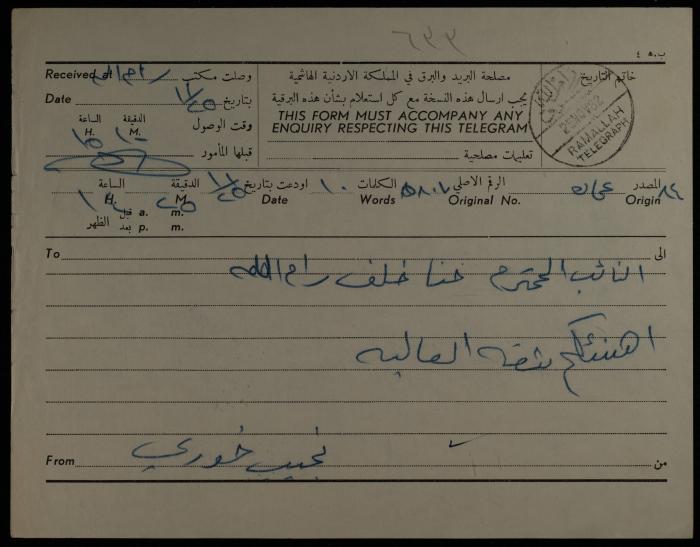 ٦٣٣
ب. ه ٤
Received at رام الله وصلت مكتب
Date ١١/٢٥ بتاريخ
الساعة الدقيقة
H. M. وقت الوصول
١٥ ١٠
قبلها المأمور
مصلحة البريد والبرق في المملكة الاردنية الهاشمية
يجب ارسال هذه النسخة مع كل استعلام بشأن هذه البرقية
THIS FORM MUST ACCOMPANY ANY
ENQUIRY RESPECTING THIS TELEGRAM
تعليمات مصلحية
خاتم التاريخ
رام الله
RAMALLAH
TELEGRAPH
المصدر عمان
Origin
الرقم الاصلي
Original No.
الكلمات ١٠
Words
اودعت بتاريخ ١١/٢٥
Date
الساعة الدقيقة
H. M.
٢٥
قبل a. m.
الظهر
بعد p. m.
To الى
النائب المحترم حنا خلف رام الله
اهنئكم بثقة الغالية
From نجيب خوري من